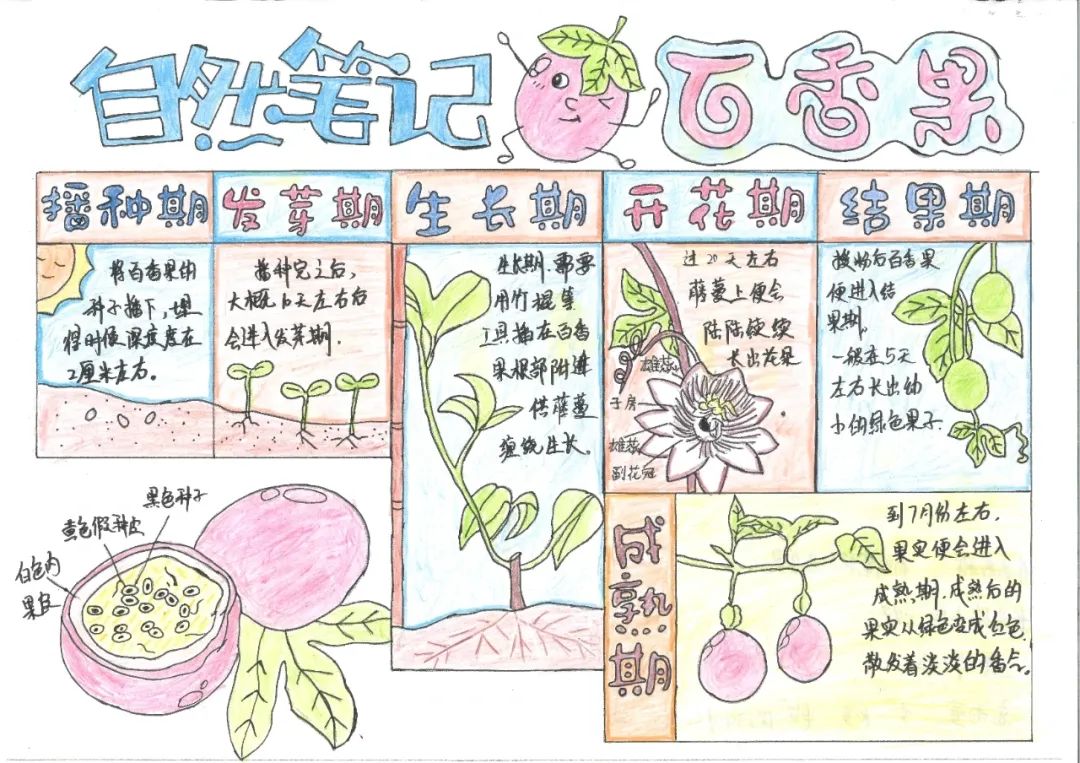 自然笔记 百香果
播种期
将百香果的
种子播下,埋
得时使深度度在
2厘米左右。
发芽期
播种完之后,
大概15天左右后
会进入发芽期.
生长期
生长期.需要
用竹棍等
工具插在百香
果根部附进
供藤蔓
缠绕生长。
开花期
过20天左右
藤蔓上便会
陆陆续续
长出花朵
雄蕊
子房
雄蕊
副花冠
结果期
授粉后百香果
便进入结
果期,
一般在5天
左右长出幼
小的绿色果子
黑色种子
黄色假种皮
白色内
果皮
成熟期
到7月份左右.
果实便会进入
成熟期.成熟后的
果实从绿色变成红色.
散发着淡淡的香气。